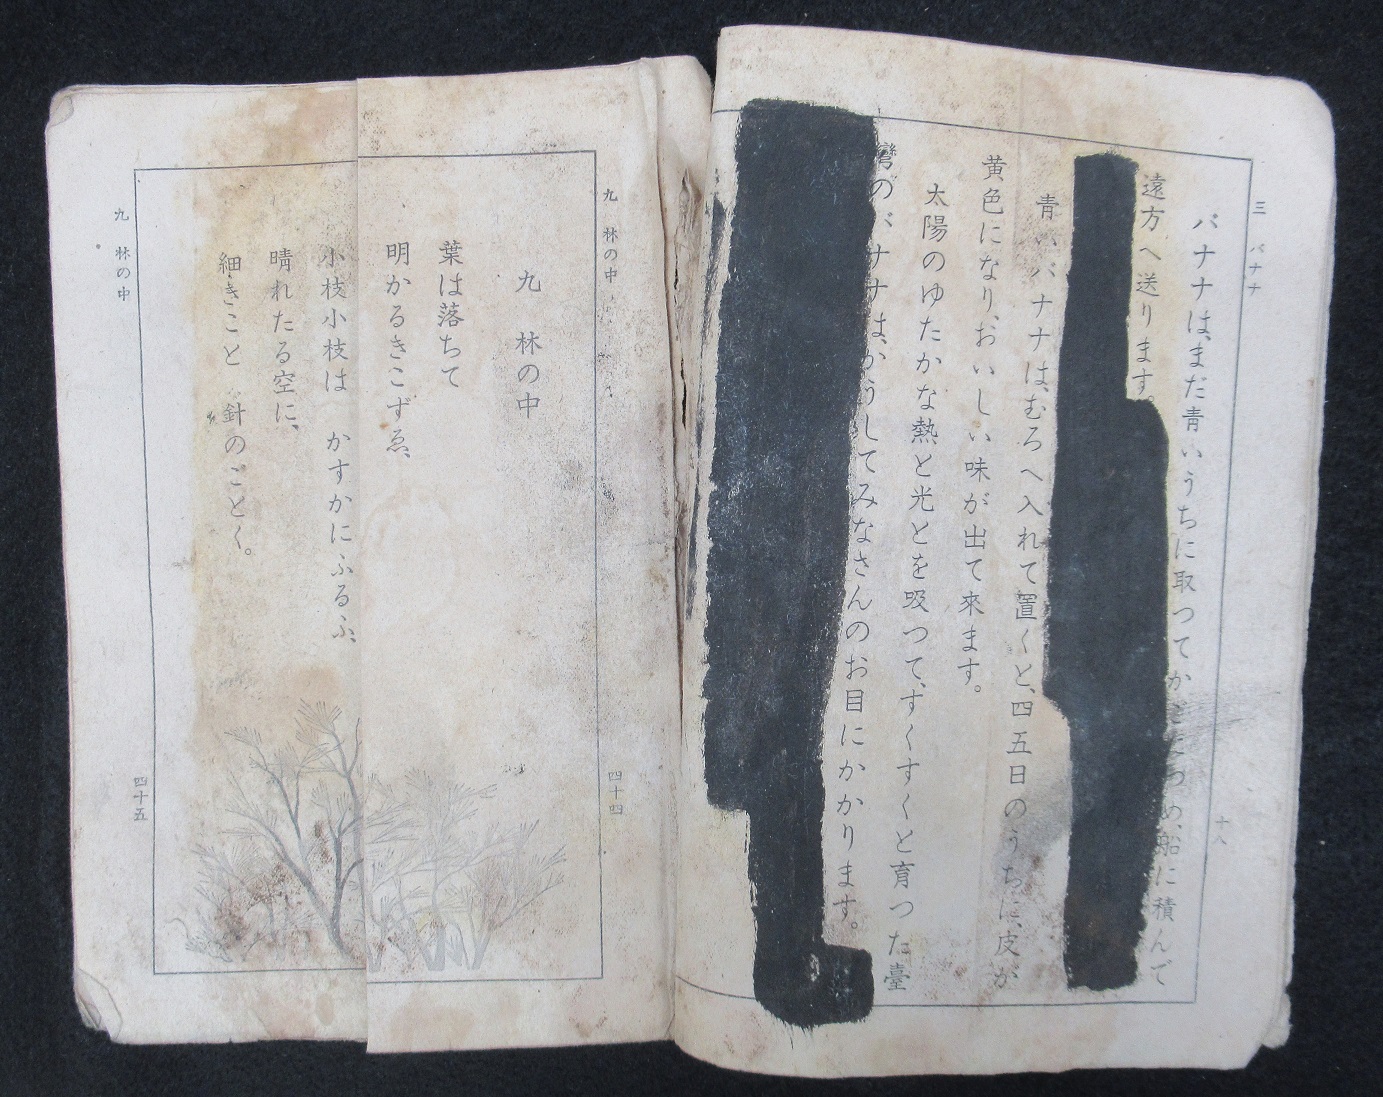 三 バナナ
十八
バナナは、まだ青いうちに取つてかごにつめ、船に積んで
遠方へ送ります。
青いバナナは、むろへ入れて置くと、四五日のうちに、皮が
黄色になり、おいしい味が出て來ます。
太陽のゆたかな熱と光とを吸つて、すくすくと育つた臺
灣のバナナは、かうしてみなさんのお目にかかります。
九 林の中
四十四
九 林の中
葉は落ちて
明かるきこずゑ、
小枝小枝は かすかにふるふ、
晴れたる空に、
細きこと 針のごとく。
九 林の中
四十五